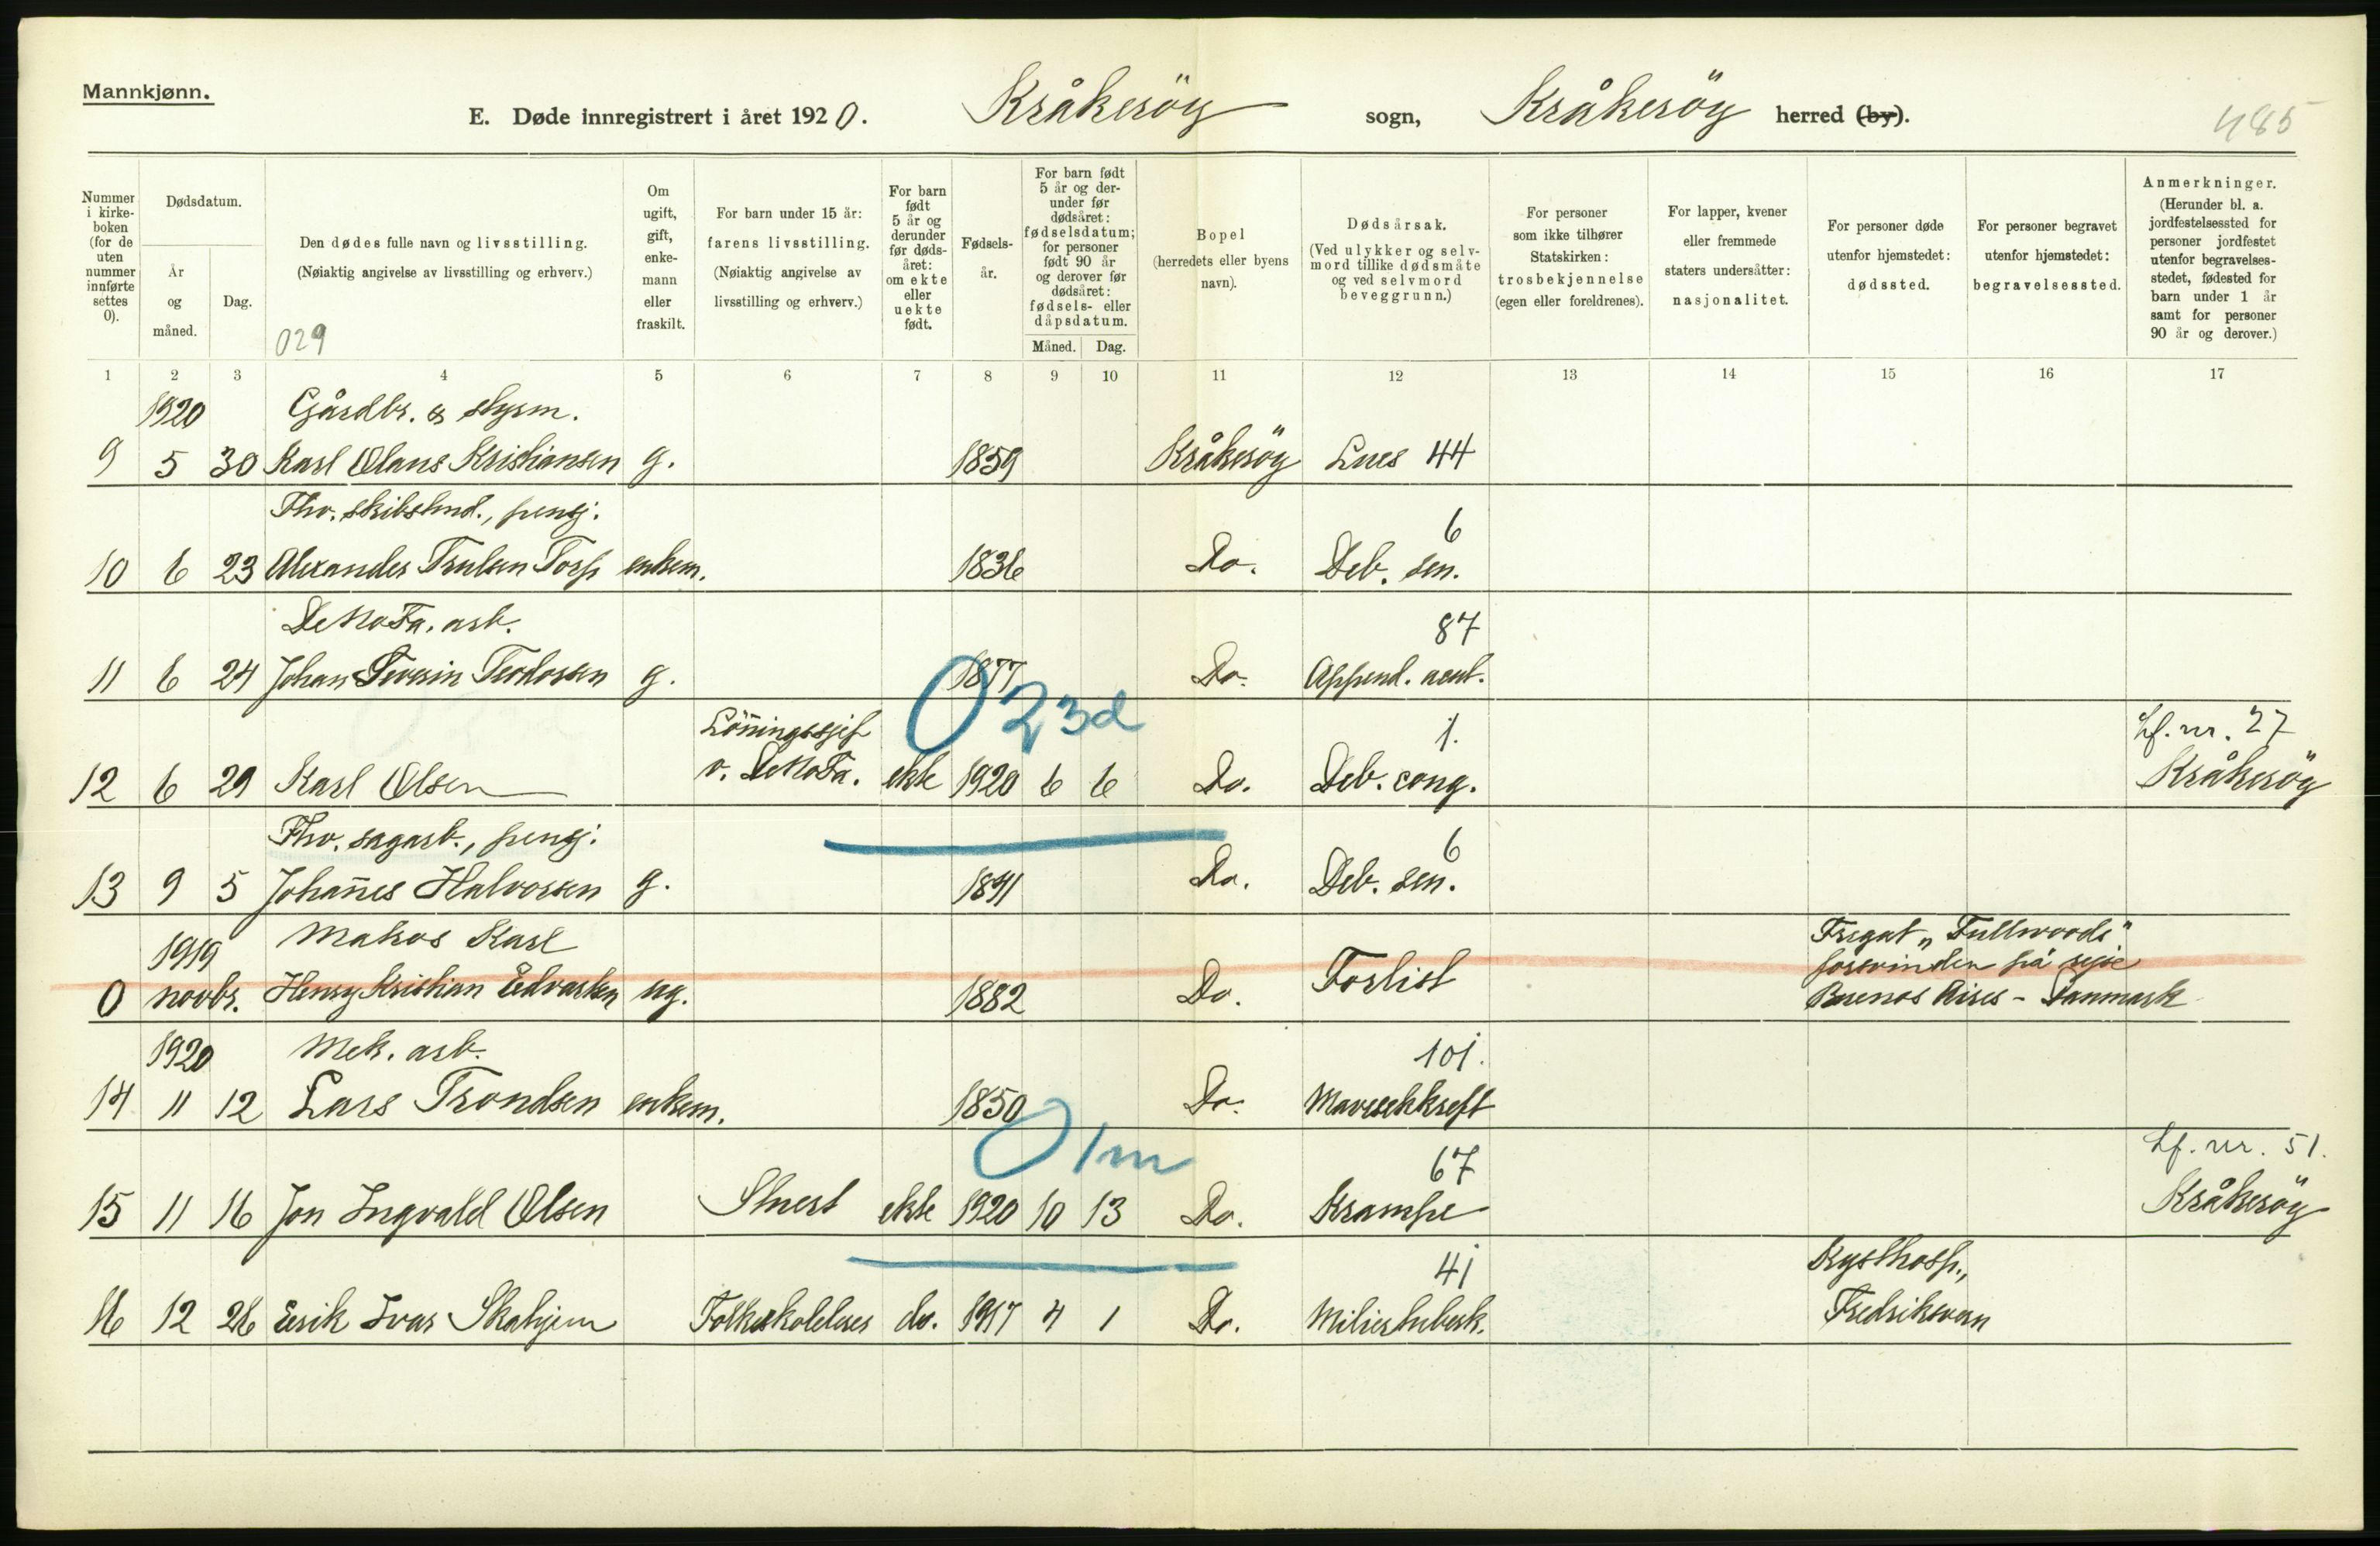 Mannkjønn.
E. Døde innregistrert i året 1920. Kråkeröy sogn, Kråkeröy herred (by).
485
Nummer i kirkeboken (for de uten nummer innførte settes 0).
Dødsdatum.
År og måned.
Dag.
Den dødes fulle navn og livsstilling.
(Nøiaktig angivelse av livsstilling og erhverv.)
029
Om ugift, gift, enkemann eller fraskilt.
For barn under 15 år:
farens livsstilling.
(Nøiaktig angivelse av livsstilling og erhverv.)
For barn født 5 år og derunder før dødsåret: om ekte eller uekte født.
Fødselsår.
For barn født 5 år og derunder før dødsåret: fødselsdatum; for personer født 90 år og derover før dødsåret: fødsels- eller dåpsdatum.
Måned. Dag.
Bopel
(herredets eller byens navn).
Dødsårsak.
(Ved ulykker og selvmord tillike dødsmåte og ved selvmord beveggrunn.)
For personer som ikke tilhører Statskirken: trosbekjennelse (egen eller foreldrenes).
For lapper, kvener eller fremmede staters undersåtter: nasjonalitet.
For personer døde utenfor hjemstedet: dødssted.
For personer begravet utenfor hjemstedet: begravelsessted.
Anmerkninger.
(Herunder bl. a. jordfestelsessted for personer jordfestet utenfor begravelsesstedet, fødested for barn under 1 år samt for personer 90 år og derover.)
1 2 3 4 5 6 7 8 9 10 11 12 13 14 15 16 17
1920 Gårdbr. & styrm.
9 5 30 Karl Olaus Kristiansen g. 1859 Kråkeröy Lues 44
Fhv. skibstmd., pensj. 6
10 6 23 Alexander Trulsen Torp enkem. 1836 Do. Deb. sen.
DeNoFa. arb. 87
11 6 24 Johan Severin Teodorsen g. 1877 Do. Append. acut.
023d
Lönningssjef 1. Lf. nr. 27
12 6 29 Karl Olsen v. DeNoFa. ekte 1920 6 6 Do. Deb. cong. Kråkeröy
Fhv. sagarb., pensj. 6
13 9 5 Johannes Halvorsen g. 1841 Do. Deb. sen.
1919 Matros Karl Fregat „Fullwoods"
0 novbr. Henry Kristian Edvardsen ug. 1882 Do. Forlist forsvinden på rejse
Buenos Aires - Danmark
1920 Mek. arb. 101.
14 11 12 Lars Trondsen enkem. 1850 Do. Mavesekkreft
01m
67 Lf. nr. 51.
15 11 16 Jon Ingvald Olsen Stuert ekte 1920 10 13 Do. Krampe Kråkeröy
41 Kysthosp.,
16 12 26 Erik Ivar Skahjem Folkeskolelærer do. 1917 4 1 Do. Miliertuberk. Fredriksvern